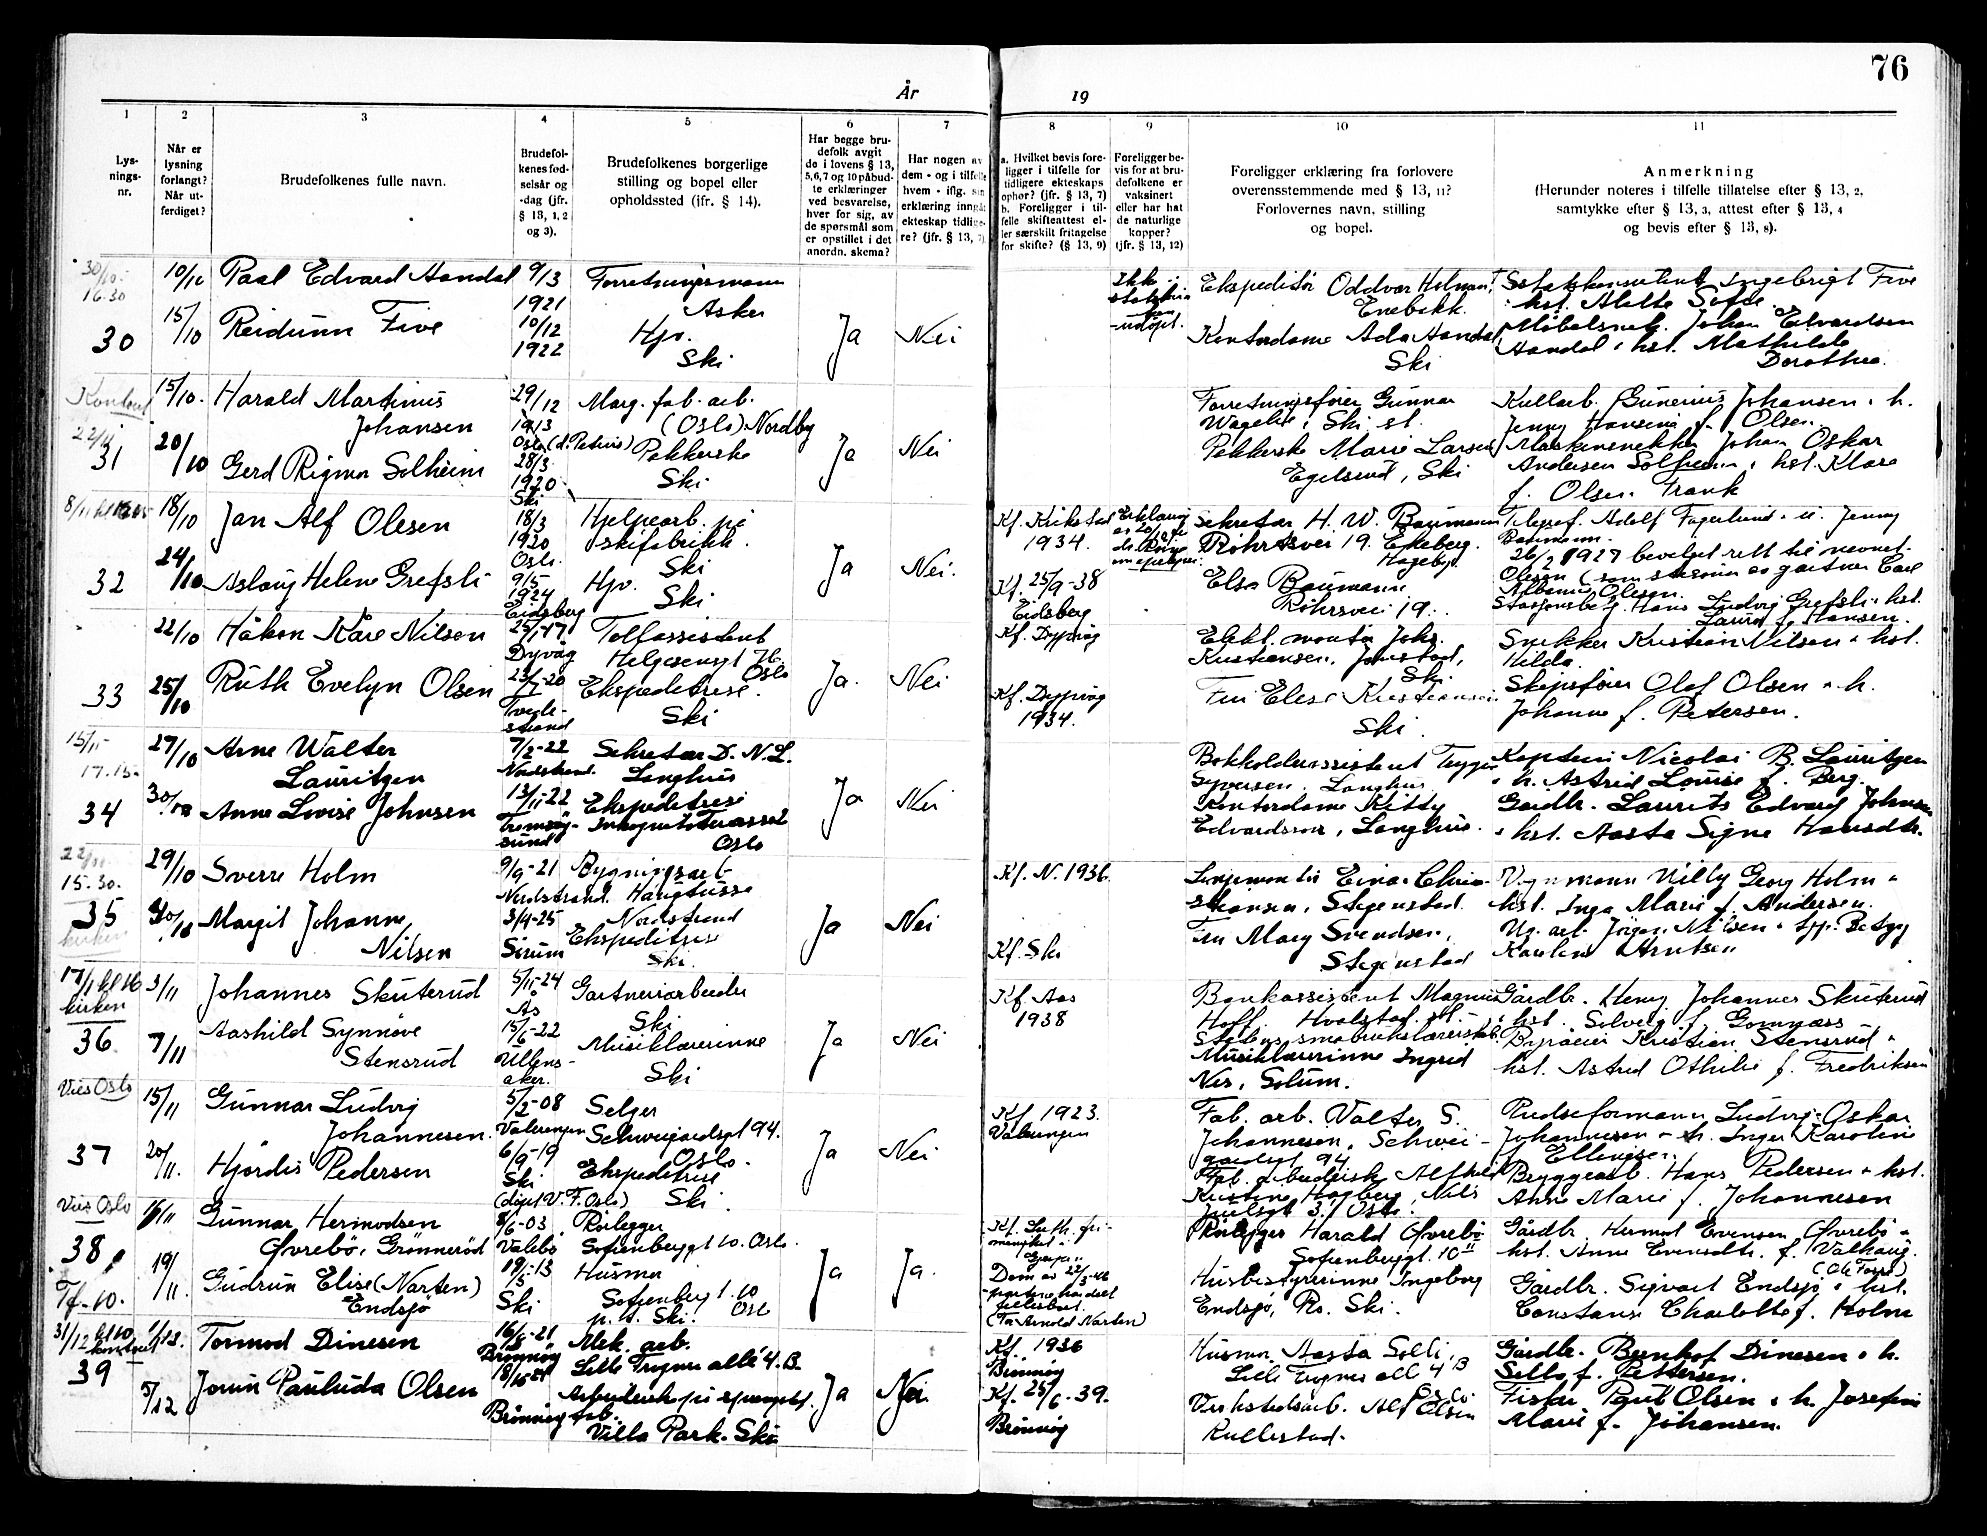 76
År 19
1 2 3 4 5 6 7 8 9 10 11
Lys-
nings-
nr.
Når er
lysning
forlangt?
Når ut-
ferdiget?
Brudefolkenes fulle navn.
Brudefol-
kenes fød-
selsår og
-dag (jfr.
§ 13, 1, 2
og 3).
Brudefolkenes borgerlige
stilling og bopel eller
opholdssted (jfr. § 14).
Har begge bru-
defolk avgit
de i lovens § 13,
5,6,7 og 10 påbud-
te erklæringer
ved besvarelse,
hver for sig, av
de spørsmål som
er opstillet i det
anordn. skema?
Har nogen av
dem - og i tilfelle
hvem - iflg. sin
erklæring inngåt
ekteskap tidlige-
re? (jfr. § 13, 7)
a. Hvilket bevis fore-
ligger i tilfelle for
tidligere ekteskaps
ophør? (jfr. § 13, 7)
b. Foreligger i til-
felle skifteattest el-
ler særskilt fritagelse
for skifte? (§ 13, 9)
Foreligger be-
vis for at bru-
defolkene er
vaksinert
eller har hat
de naturlige
kopper?
(jfr. § 13, 12)
Foreligger erklæring fra forlovere
overensstemmende med § 13, 11?
Forlovernes navn, stilling
og bopel.
Anmerkning
(Herunder noteres i tilfelle tillatelse efter § 13, 2,
samtykke efter § 13, 3, attest efter § 13, 4
og bevis efter § 13, 8).
30/10
16.30
30
10/10
15/10
Paal Edvard Aandal
Reidunn Five
9/3
1921
10/12
1922
Forretningsmann
Asker
Hjv.
Ski
Ja
Nei
Ekspeditør Oddvar Holman,
Enebakk.
Kontordame Ada Aandal
Ski
Statskonsulent Ingebrigt Five
Møbelsnek. Johan Edvardsen
Aandal · hst. Mathilde
Dorothea.
Kontoret
22/11
31
15/10.
20/10
Harald Martinius
Johansen
Gerd Rigmor Solheim
29/12
1913
Oslo (d. Petrus)
28/3
1920
Ski
Marg. fab. arb.
(Oslo) Nordby
Pakkerske
Ski
Ja
Nei
Forretningsfører Gunnar
Wageli, Ski st.
Pakkerske Marie Larsen
Egelsrud, Ski
Kullarb. Gunerius Johansen · h.
Jenny Hansine f. Olsen.
Maskinsnekker Johan Oskar
Andersen · hst. Klara
f. Olsen Trank
32
18/10
24/10
Jan Alf Olesen
Aslaug Helene Grefsli
18/3
1920
Oslo.
9/5
1924
Eidsberg
Hjelpearb. på
skifabrikk.
Ski
Hjv.
Ski
Ja
Nei.
1934.
Kf. 25/9-38
Eidsberg
Sekretær H. W. Baumann
Röhrtsvei 19. Ekeberg
Hageby
Else Baumann
Röhrsvei 19.
Telegraf. Adolf Fagerlund · u. Jenny
Baumann.
26/2 1927 bevilget rett til nevnet
Olesen
Albanus Olesen.
Stasjonsbetj. Hans Ludvig Grefsli · hst.
Laura f. Hansen.
33
22/10
25/10
Håkon Kåre Nilsen
Ruth Evelyn Olsen
Dyvåg
23/7-20
Tvede-
strand
Tollassistent
Helgesensgt 76.
Oslo
Ekspeditrise.
Ski
Ja.
Nei
Kf. Dypvåg
Kf. Dypvåg
1934.
Elekt. montør Johs.
Kristiansen,
Ski
Fru Elise Kristiansen
Ski.
Snekker Kristian Nilsen · hst.
Hilda.
Skipsfører Olaf Olsen · h.
Johanne f. Petersen.
15/11
17.15.
34
27/10
30/10
Arne Walter
Lauritzen
Anne Lovise Johnsen
7/2-22
Nordstrand.
13/11-22
Tromsöy-
sund
Sekretær D. N. L.
Langhus
Ekspeditrise
Inkognito Terasse 2
Oslo
Ja
Nei
Bokholderassistent Trygve
Syversen, Langhus
Kontordame Kitty
Edvardsen, Langhus.
Kaptein Nicolai B. Lauritzen
· h. Astrid Louise f. Berg.
Gårdbr. Laurits Edvard Johnsen
· hst. Aasta Signe Hansdtr.
22/11
15.30.
35
kirken
29/10
30/10
Sverre Holm
Margit Johanne
Nilsen
9/9-21
Nordstrand.
3/4-25
Sörum
Bygningsarb
Haugtussa
Nordstrand
Ekspeditrise
Ski.
Ja
Nei
Kf. N. 1936.
Kf. Ski
Einar Chris-
tiansen, Stegenstad.
Fru Mary Svendsen,
Stegenstad
Vognmann Willy Georg Holm ·
hst. Inga Marie f. Andersen.
17/1 kl 16
kirken
36
3/11
7/11
Johannes Skuterud
Aashild Synnöve
Stensrud
5/11-24
Ås
15/6-22
Ullens-
aker.
Gartneriarbeider
Ski
Musiklærerinne
Ski
Ja
Nei
Kf. Aas
1938
Bankassistent Magnus
Hoff. Hvalstad st.
Statens småbrukslærerskole
Musiklærerinne Ingrid
Nes, Solum.
Gårdbr. Henry Johannes Skuterud
· hst. Solveig f. Gomnæss
Byråsjef Kristian Stensrud ·
hst. Astrid Othilie f. Fredriksen
Vies Oslo
37
15/11
20/11.
Gunnar Ludvig
Johannesen.
Hjördis Pedersen
5/2-08
Valerengen
6/9-19
Ski
(döpt V. F. Oslo)
Selger
Schweigaardsgt 94.
Oslo.
Ekspeditrise
Ski
Ja
Nei
Kf. 1923.
Valerengen
Fab. arb. Valter S.
Johannesen, Schwei-
gaardsgt 94
Fab. arbeiderske Alfhild
Kristine Hagberg, Nils
Juelsgt 31 Oslo.
Pudseformann Ludvig Oskar
Johannesen · h. Inger Karoline
f. Ellingsen.
Bryggearb. Hans Pedersen · hst.
Anna Marie f. Johannesen
Vies Oslo
38.
16/11
19/11.
Gunnar Hermodsen
Övrebö, Grönneröd
Gudrun Elise (Narten)
Endsjø
8/6-03
Valebö
19/5-13
Ski
Rörlegger
Sofienberggt 10. Oslo.
Husmor
Sofienberg 1. 10
p. t. Ski. Oslo
Ja
Ja.
Dom av 22/3-46
(Tor Arnold Narten)
Rörlegger Harald Övrebö
Sofienberggt. 10
Husbestyrerinne Ingeborg
Endsjø, Ro. Ski.
Gårdbr. Hermod Evensen Övrebö ·
hst. Anne Evensdtr. f. Valhaug.
Gårdbr. Sigvart Endsjø · hst.
Constanse Charlotte f. Holm
31/12 kl 10
kontoret
39
5/12
Tormod Dinesen
Jorun Paulida Olsen
16/8-21
Brönnöy
Brönnöy
Mek. arb.
Lille Frogner allé 4. B.
Arbeiderske på
fab.
Villa Park. Ski
Ja
Nei
Kf. 1936
Brönnöy
Kf. 25/6-39.
Brönnöy
Husmor Aasta Solli,
Lille Frogner all 4 B
Oslo
Verkstedsarb. Alf Olsen
Rullestad.
Gårdbr. Bernhof Dinesen · h.
Sella f. Pettersen.
Fisker Paul Olsen · h. Josefine
Marie f. Johansen.